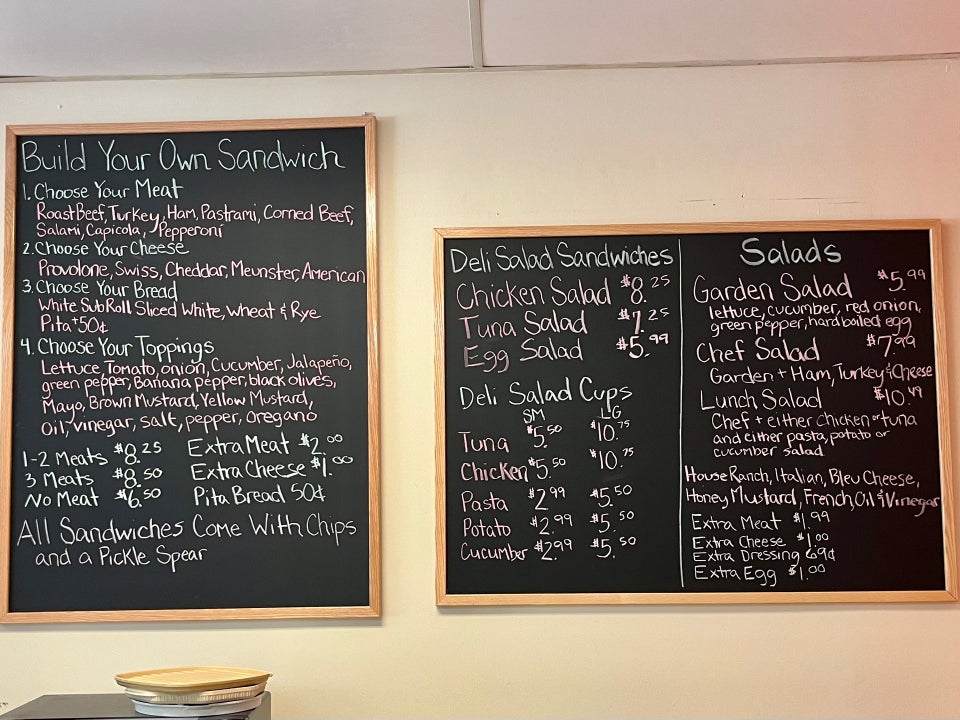 Build Your Own Sandwich
1. Choose Your Meat
Roast Beef, Turkey, Ham, Pastrami, Corned Beef,
Salami, Capicola, Pepperoni
2. Choose Your Cheese
Provolone, Swiss, Cheddar, Meunster, American
3. Choose Your Bread
White Sub Roll Sliced White, Wheat & Rye
Pita +50¢
4. Choose Your Toppings
Lettuce, Tomato, onion, Cucumber, Jalapeño,
green pepper, Banana pepper, black olives,
Mayo, Brown Mustard, Yellow Mustard,
Oil, vinegar, salt, pepper, oregano
1-2 Meats $8.25 Extra Meat $2.00
3 Meats $8.50 Extra Cheese $1.00
No Meat $6.50 Pita Bread 50¢
All Sandwiches Come With Chips
and a Pickle Spear
Deli Salad Sandwiches
Chicken Salad $8.25
Tuna Salad $7.25
Egg Salad $5.99
Deli Salad Cups
SM LG
Tuna $5.50 $10.75
Chicken $5.50 $10.75
Pasta $2.99 $5.50
Potato $2.99 $5.50
Cucumber $2.99 $5.50
Salads
Garden Salad $5.99
lettuce, cucumber, red onion,
green pepper, hard boiled egg
Chef Salad $7.99
Garden + Ham, Turkey & Cheese
Lunch Salad
Chef + either chicken or tuna
and either pasta, potato or
cucumber salad
House Ranch, Italian, Bleu Cheese,
Honey Mustard, French, Oil & Vinegar
Extra Meat $1.99
Extra Cheese $1.00
Extra Dressing 69¢
Extra Egg $1.00